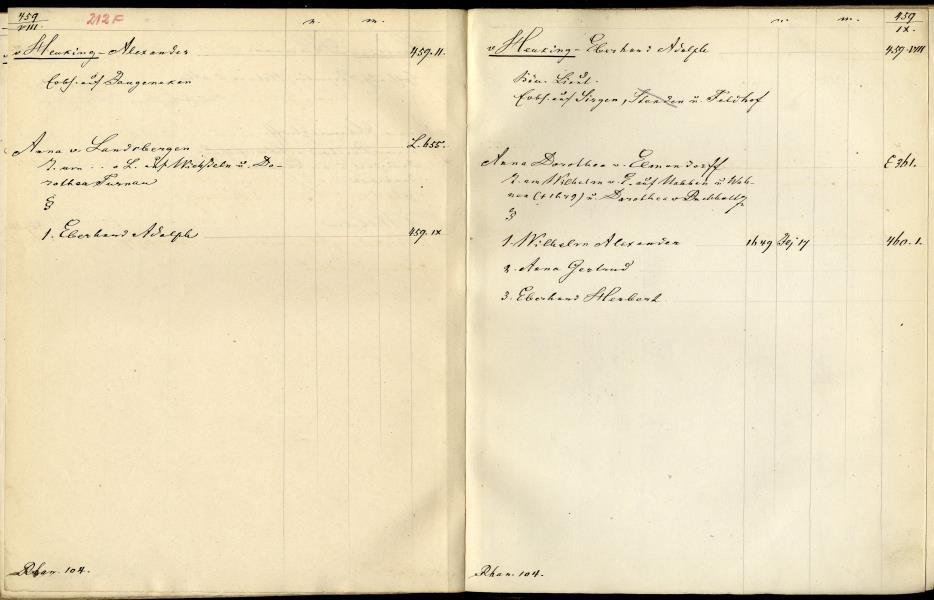 459
VIII.
212 F
n. m.
v Heuking - Alexander 459. II.
Erbh. auf Baugeneken
Anna v. Landsbergen L. 655.
T. von . . v L. auf u. Do-
rothea Turnau
§
1. Eberhard Adolph 459. IX
Rhan. 104.
n. m.
459
IX.
v Heuking - Eberhard Adolph 459. VIII
Lieut.
Erbh. auf Sirgen, Standen u. Feldhof
Anna Dorothea v. Elmendorff E 361.
T. von Wilhelm v. E. auf u Wah-
nen (+ 1679) u. Dorothea v Buchholtz
§
1. Wilhelm Alexander 1649 17 460. 1.
2. Anna Gertrud
3. Eberhard Herbert
Rhan. 104.